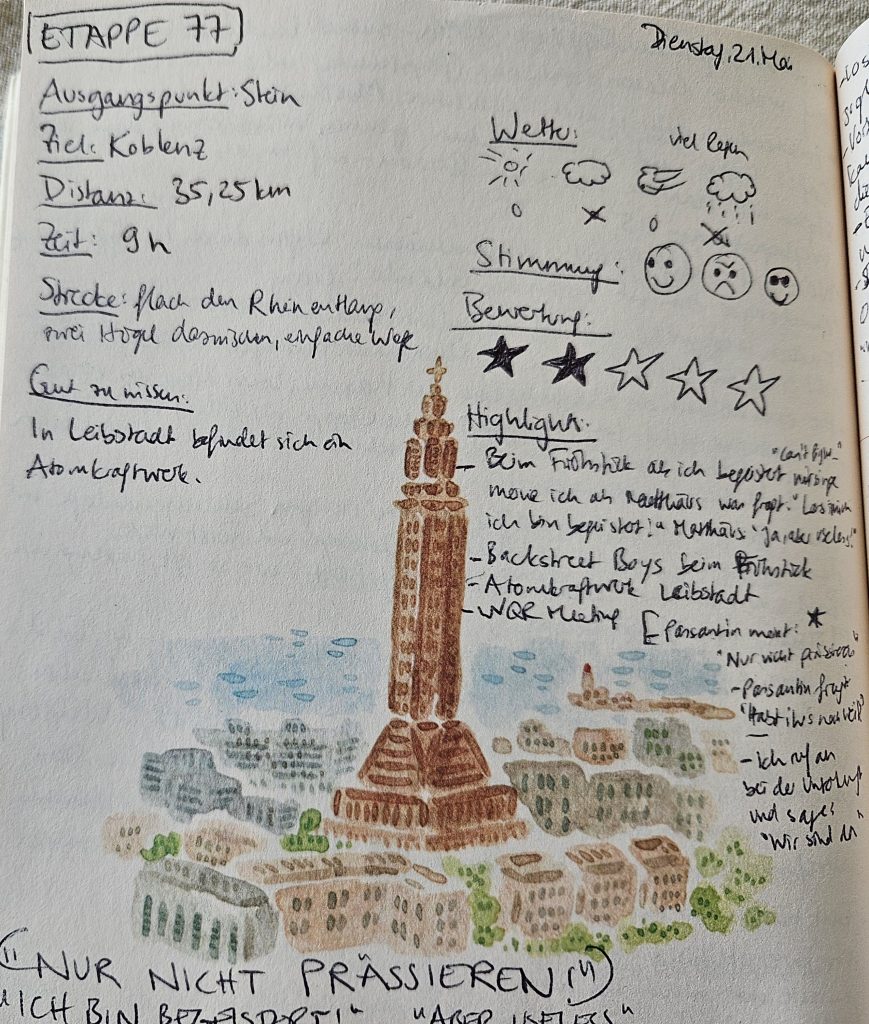 ETAPPE 77
Dienstag, 21. Mai
Ausgangspunkt: Stein
Ziel: Koblenz
Distanz: 35,25 km
Zeit: 9h
Strecke: flach den Rhein entlang,
zwei Hügel dazwischen, einfache Wege
Gut zu wissen:
In Leibstadt befindet sich ein
Atomkraftwerk.
Wetter:
viel Regen
Stimmung:
Bewertung:
Highlights:
- Beim Frühstück als ich begeistert mitsinge
meine ich als Matthäus was fragt: "Lass mich
ich bin begeistert!" Matthäus "Ja, aber useless!"
- Backstreet Boys beim Frühstück
- Atomkraftwerk Leibstadt
- WQR Meeting
[Passantin meint:
"Nur nicht präsieren"
- Passantin fragt
"Habt ihrs noch weit?"
- Ich ruf an
bei der Unterkunft
und sage:
"Wir sind da"
("NUR NICHT PRÄSSIEREN!")
"ICH BIN BEGEISTERT!" "ABER USELESS"